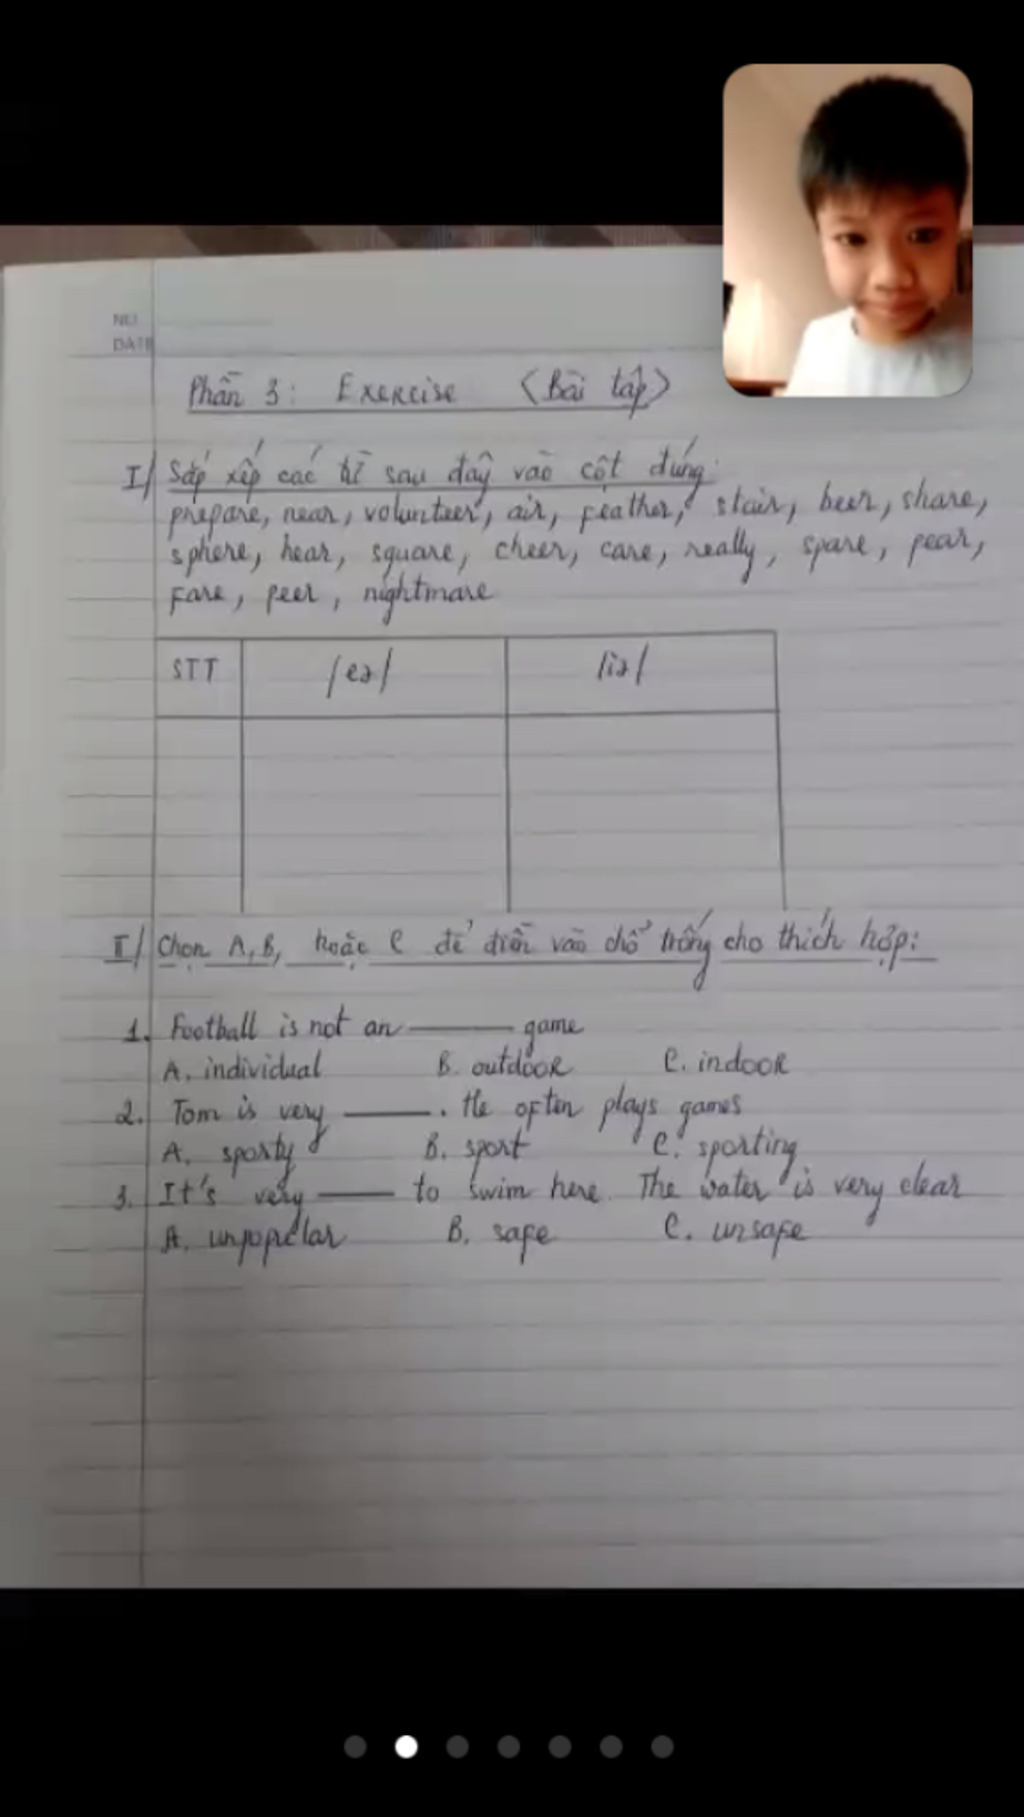 NO.
DATE
Phần 3: Exercise <Bài tập>
I/ Sắp xếp các từ sau đây vào cột đúng:
prepare, near, volunteer, air, feather, stair, beer, share,
sphere, hear, square, cheer, care, really, spare, pear,
fare, peer, nightmare
STT /eə/ /iə/
II/ Chọn A, B, hoặc C để điền vào chổ trống cho thích hợp:
1. Football is not an ——— game
A. individual B. outdoor C. indoor
2. Tom is very ———. He often plays games
A. sporty B. sport C. sporting
3. It's very ——— to swim here. The water is very clear
A. unpopular B. safe C. unsafe